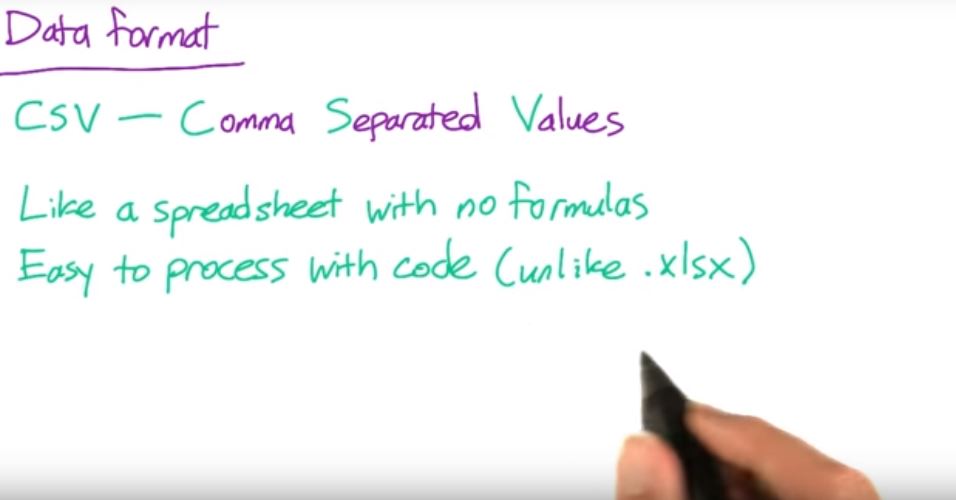 Data format
CSV — Comma Separated Values
Like a spreadsheet with no formulas
Easy to process with code (unlike .xlsx)